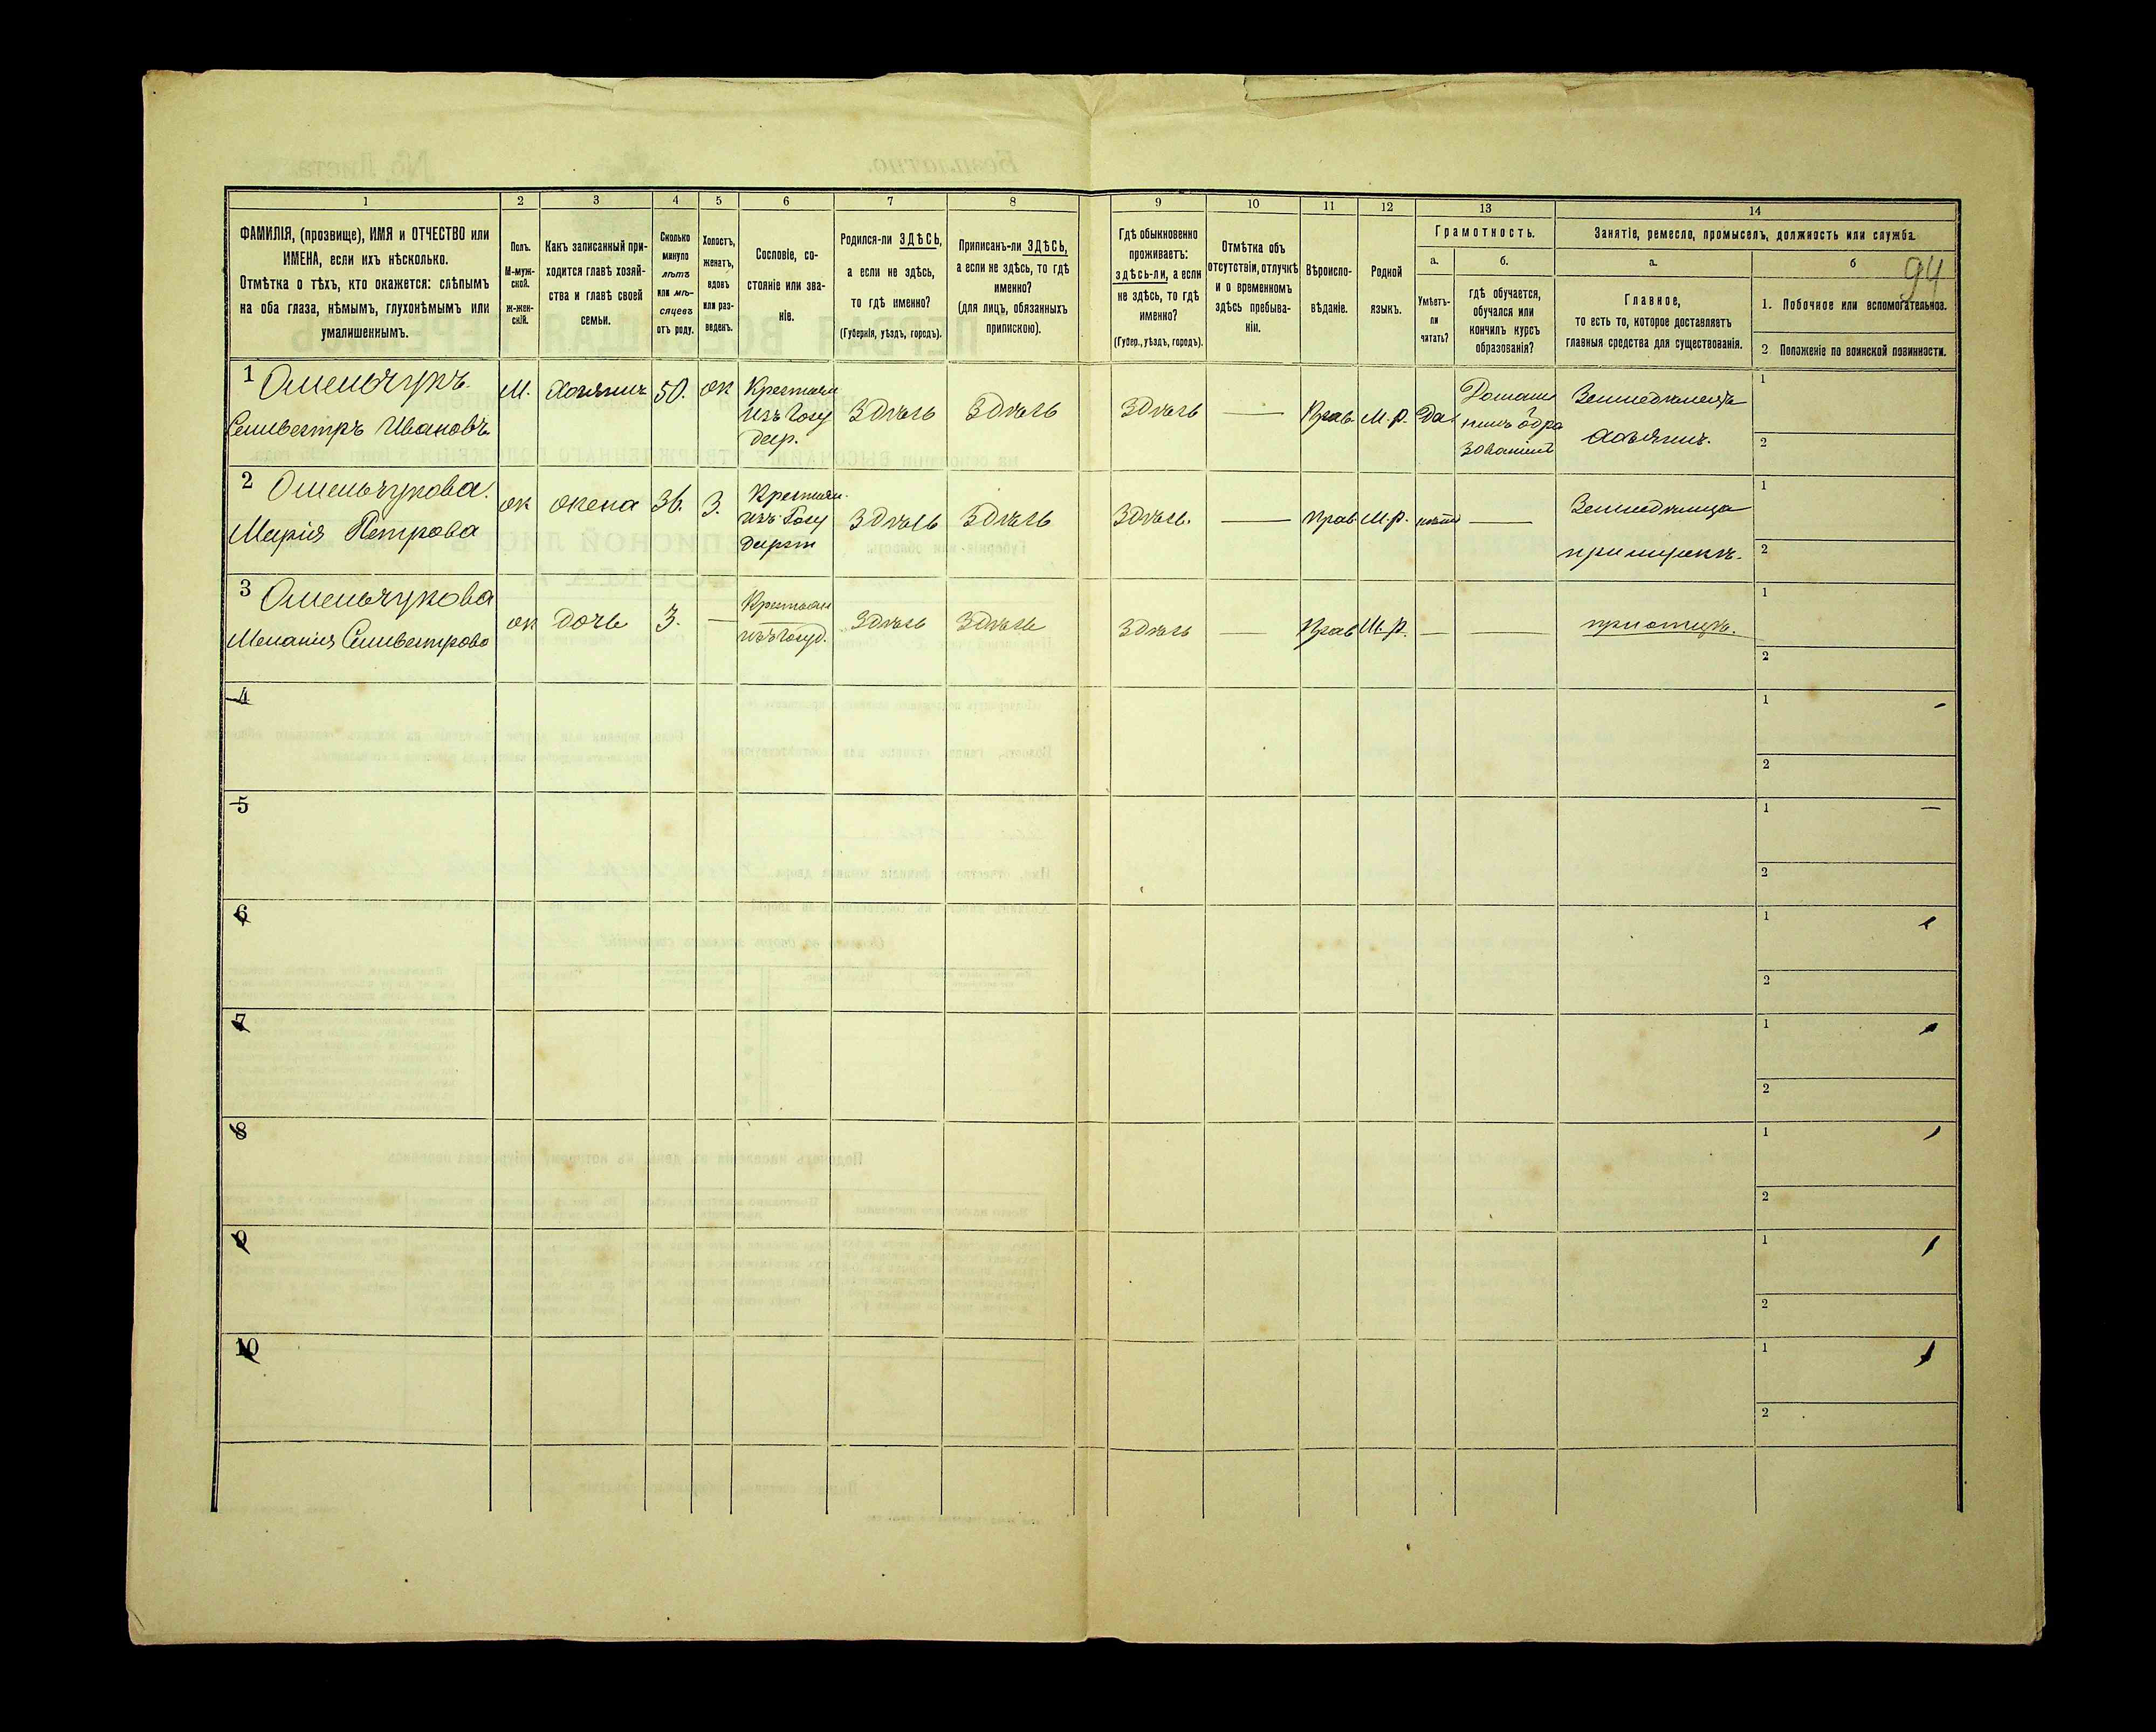 94
1 2 3 4 5 6 7 8 9 10 11 12 13 14
ФАМИЛІЯ, (прозвище), ИМЯ и ОТЧЕСТВО или
ИМЕНА, если ихъ нѣсколько.
Отмѣтка о тѣхъ, кто окажется: слѣпымъ
на оба глаза, нѣмымъ, глухонѣмымъ или
умалишеннымъ.
Полъ.
М-муж-
ской.
ж-жен-
скій.
Какъ записанный при-
ходится главѣ хозяй-
ства и главѣ своей
семьи.
Сколько
минуло
лѣтъ
или мѣ-
сяцевъ
отъ роду.
Холостъ,
женатъ,
вдовъ
или раз-
веденъ.
Сословіе, со-
стояніе или зва-
ніе.
Родился-ли ЗДѢСЬ,
а если не здѣсь,
то гдѣ именно?
(Губернія, уѣздъ, городъ).
Приписанъ-ли ЗДѢСЬ,
а если не здѣсь, то гдѣ
именно?
(для лицъ, обязанныхъ
припискою).
Гдѣ обыкновенно
проживаетъ:
здѣсь-ли, а если
не здѣсь, то гдѣ
именно?
(Губер., уѣздъ, городъ).
Отмѣтка объ
отсутствіи, отлучкѣ
и о временномъ
здѣсь пребыва-
ніи.
Вѣроиспо-
вѣданіе.
Родной
языкъ.
Грамотность.
а.
Умѣетъ-
ли
читать?
б.
гдѣ обучается,
обучался или
кончилъ курсъ
образованія?
Занятіе, ремесло, промыселъ, должность или служба.
а.
Главное,
то есть то, которое доставляетъ
главныя средства для существованія.
б
1. Побочное или вспомогательное.
2 Положеніе по воинской повинности.
1 Омельчукъ
Селивестръ Ивановъ
М.
Хозяинъ
50.
ж
Крестьян
изъ Госу
дар.
Здѣсь
Здѣсь
Здѣсь
—
Прав.
М. р.
Да.
Домаш
нимъ обра
зованіем
Земледѣлецъ
хозяинъ.
1
2
2 Омельчукова.
Марія Петрова
ж
жена
36.
З.
Крестьян.
изъ Госу
дарст
Здѣсь
Здѣсь
Здѣсь.
—
Прав
М. р.
нѣтъ
—
Земледѣлица
при мужѣ.
1
2
3 Омельчукова
Меланія Селивестрова
ж
дочь
3.
—
Крестьян
изъ Госуд.
Здѣсь
Здѣсь
Здѣсь
—
Прав
М. р.
—
—
при отцѣ.
1
2
4
1
2
5
1
2
6
1
2
7
1
2
8
1
2
9
1
2
10
1
2